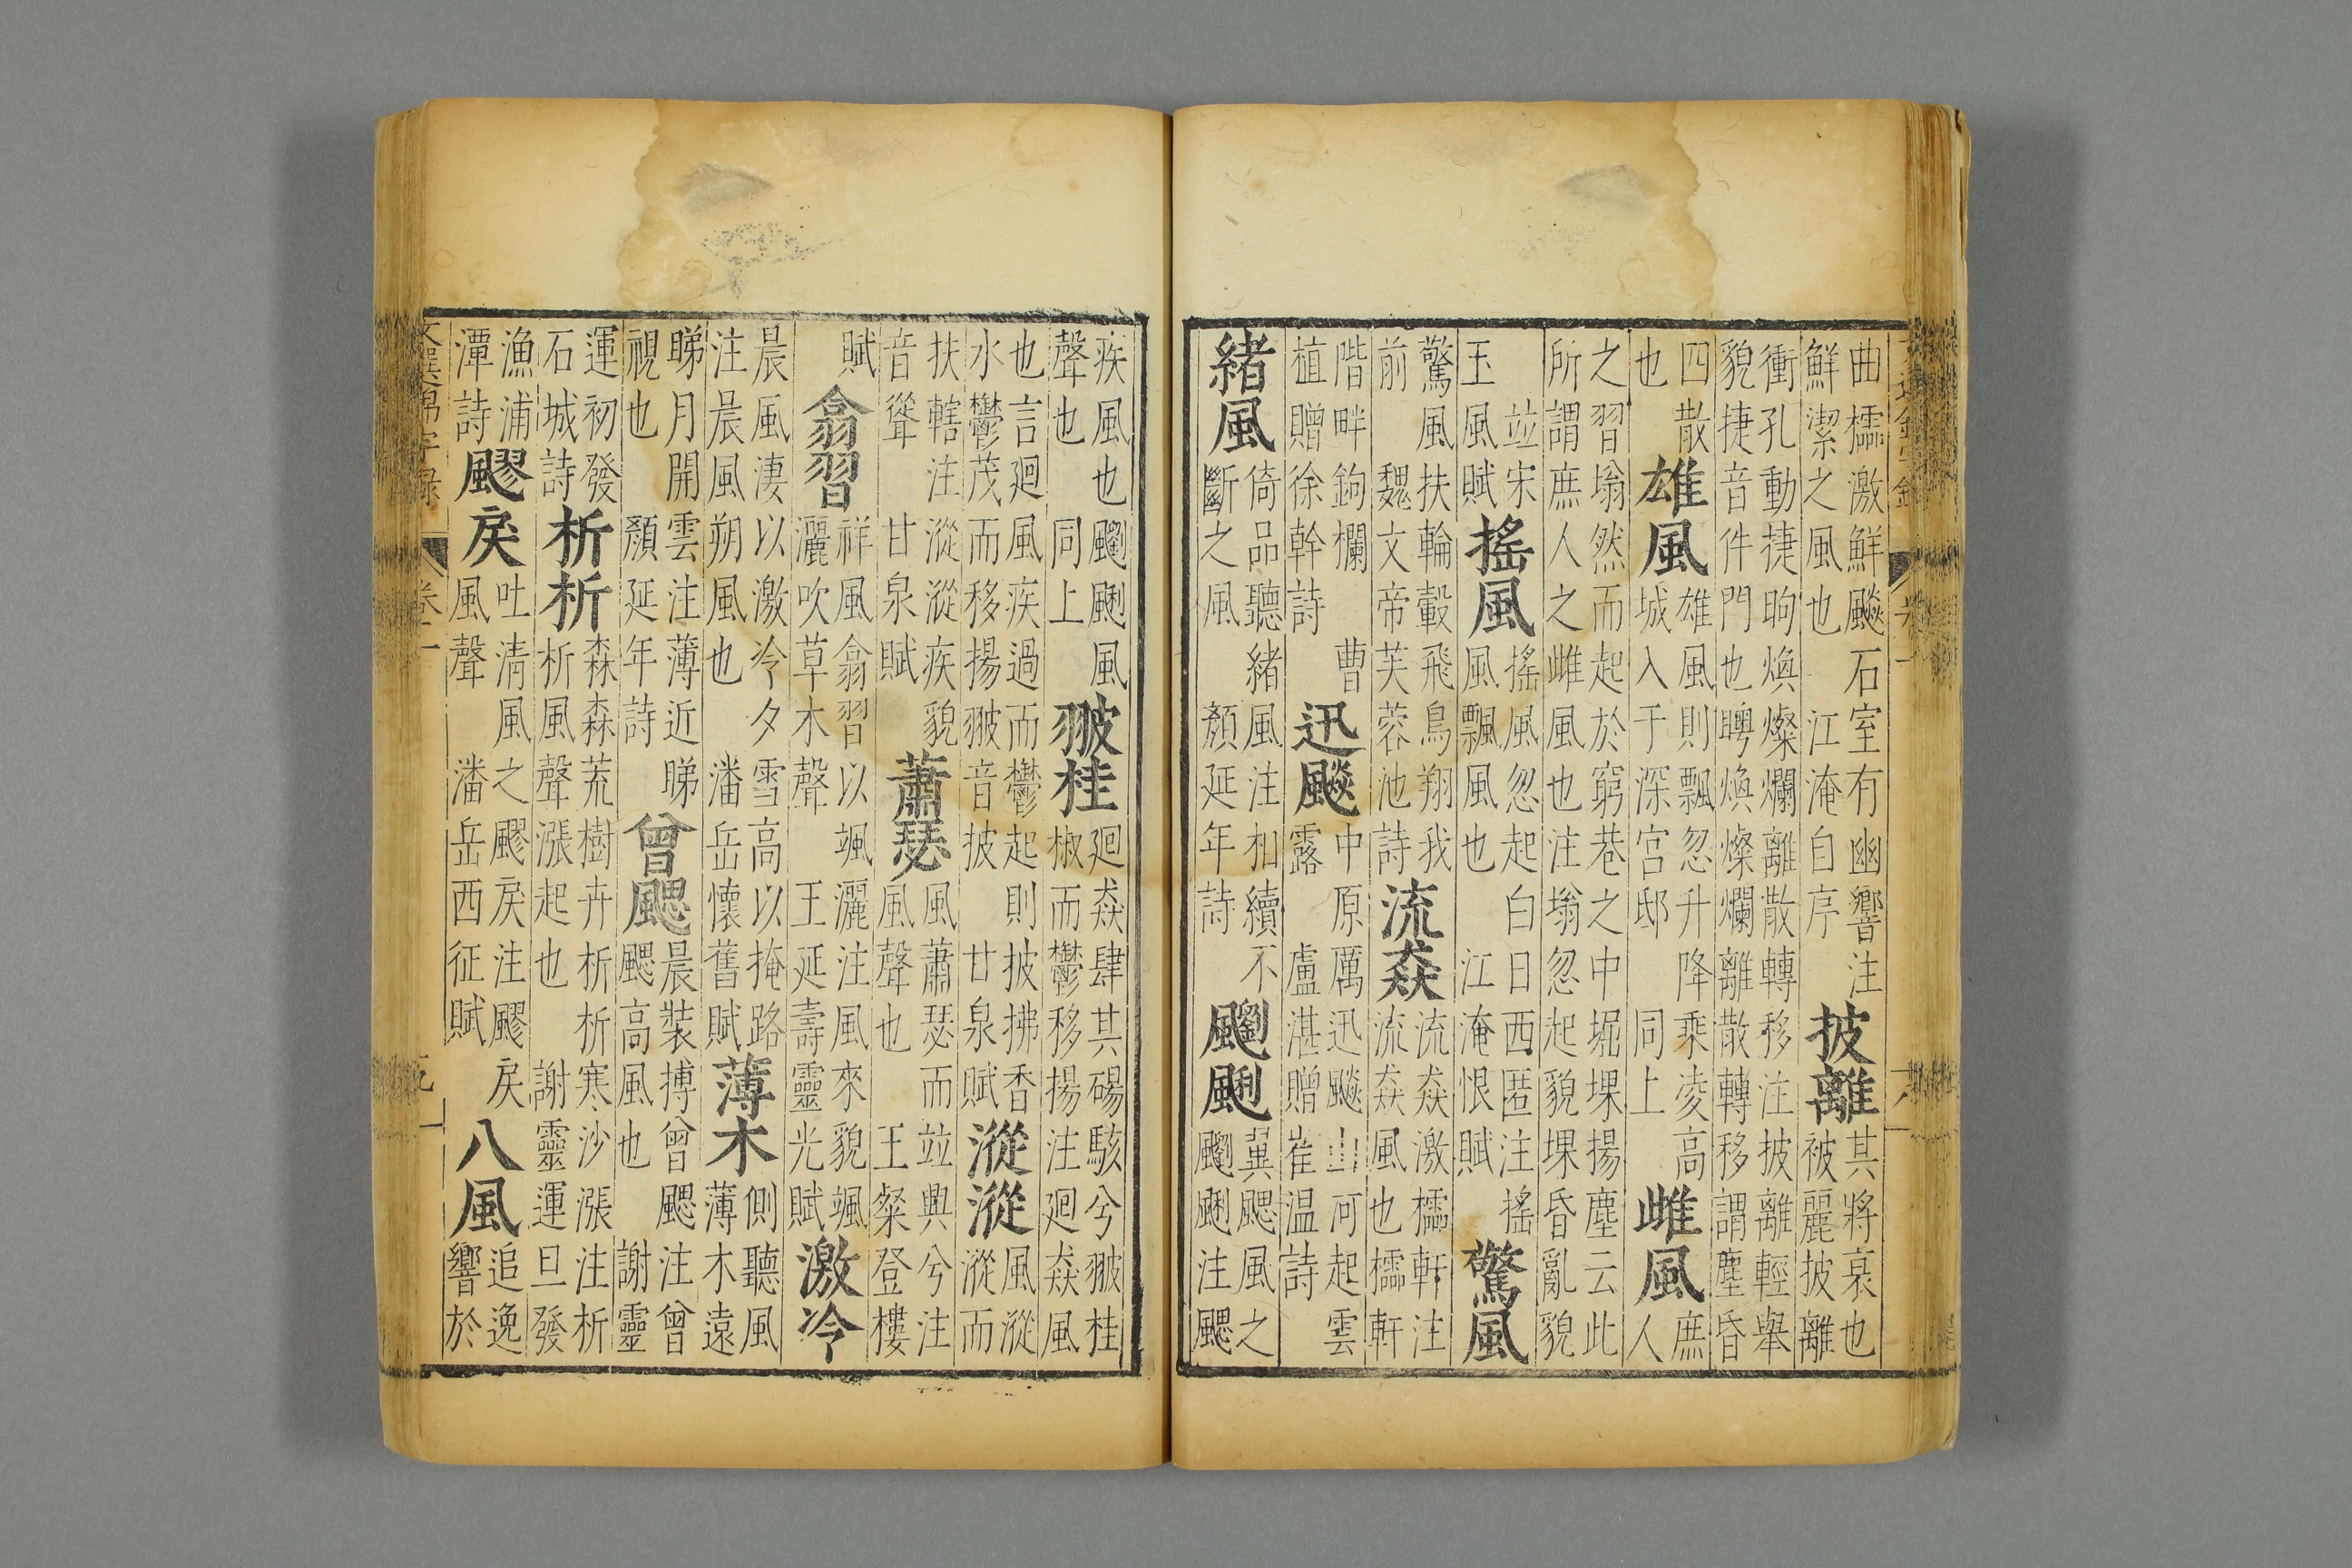 曲櫺激鮮飈石室有幽響注
鮮潔之風也 江淹自序
披離
其將衰也
被麗披離
衝孔動揵眴煥燦爛離散轉移注披離輕舉
貌揵音件門也聘煥燦爛離散轉移謂塵昏
四散
也
雄風
雄風則飄忽升降乘凌高
城入于深宮邸 同上
雌風
庶
人
之習塕然而起於窮巷之中堀堁揚塵云此
所謂庶人之雌風也注塕忽起貌堁昏亂貌
竝宋
玉風賦
搖風
搖風忽起白日西匿注搖
風飄風也 江淹恨賦
驚風
驚風扶輪轂飛鳥翔我
前 魏文帝芙蓉池詩
流猋
流猋激櫺軒注
流猋風也櫺軒
階畔鉤欄 曹
植贈徐幹詩
迅飈
中原厲迅飈山河起雲
露 盧湛贈崔温詩
緒風
倚品聽緒風注相續不
斷之風 顏延年詩
飅䬆
蓂颸風之
飅䬆注颸
疾風也飅䬆風
聲也 同上
翍桂
廻猋肆其碭駭兮翍桂
椒而鬱移揚注廻猋風
也言廻風疾過而鬱起則披拂香
水鬱茂而移揚翍音披 甘泉賦
漎漎
風漎
漎而
扶轄注漎漎疾貌
音聳 甘泉賦
蕭瑟
風蕭瑟而竝興兮注
風聲也 王粲登樓
賦
翕習
祥風翕習以颯灑注風來貌颯
灑吹草木聲 王延壽靈光賦
激冷
晨風淒以激冷夕雪高以掩路
注晨風朔風也 潘岳懷舊賦
薄木
側聽風
薄木遠
睇月開雲注薄近睇
視也 顏延年詩
曾颸
晨裝搏曾颸注曾
颸高風也 謝靈
運初發
石城詩
析析
森森荒樹卉析析寒沙漲注析
析風聲漲起也 謝靈運旦發
漁浦
潭詩
飂戾
吐清風之飂戾注飂戾
風聲 潘岳西征賦
八風
追逸
響於